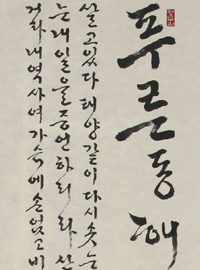 푸른동해
살고있다 태양같이 다시 솟는
내일을 증언하리라 산
내 역사여 가슴에 손얹고 비